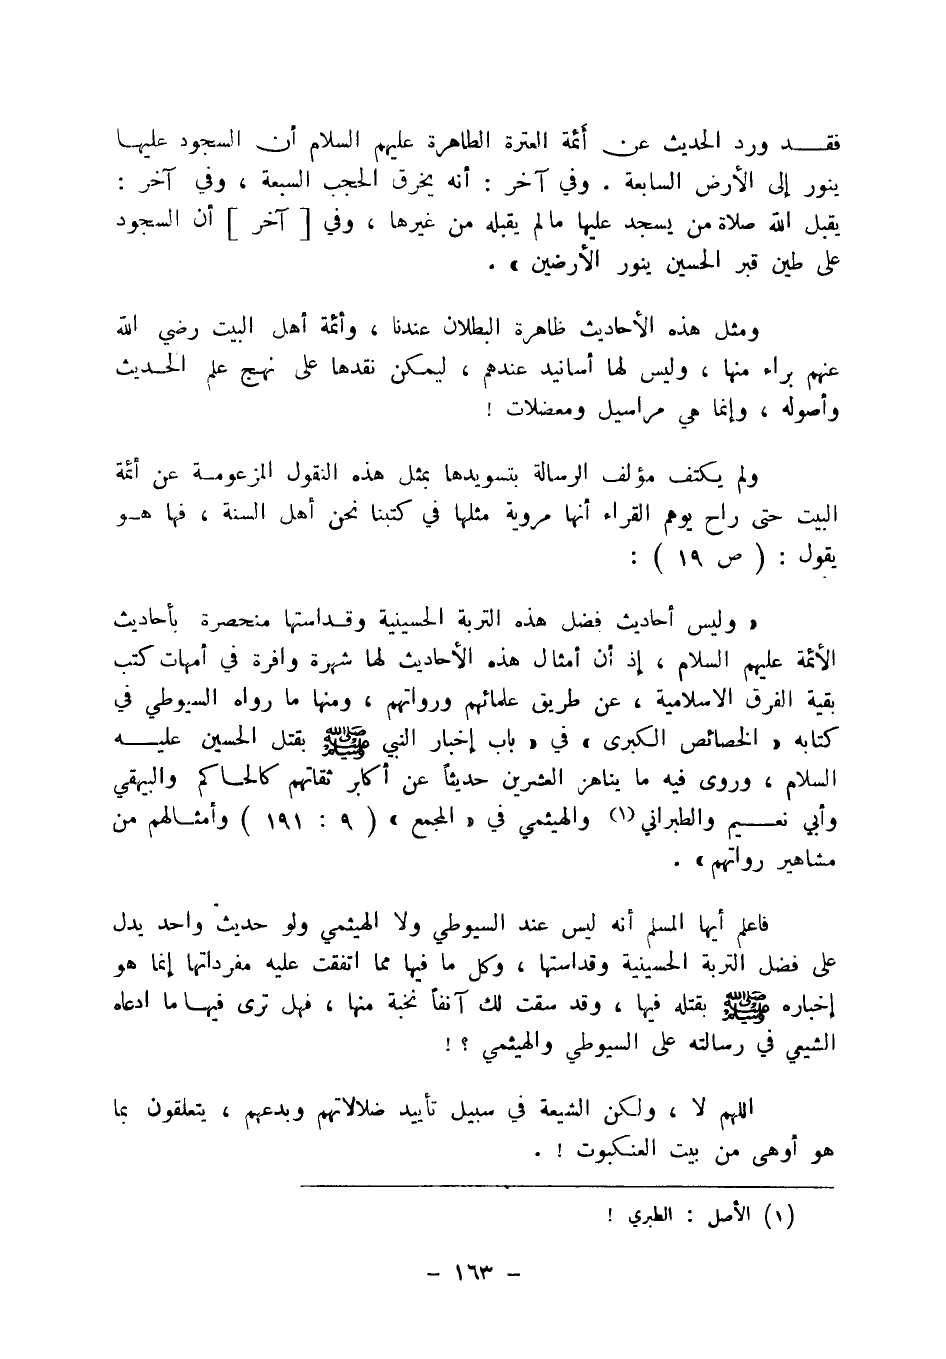 فقد ورد الحديث عن أئمة العترة الطاهرة عليهم السلام أن السجود عليها
ينور إلى الأرض السابعة . وفي آخر : أنه يخرق الحجب السبعة ، وفي آخر :
يقبل الله صلاة من يسجد عليها مالم يقبله من غيرها ، وفي [ آخر ] أن السجود
على طين قبر الحسين ينور الأرضين » .
ومثل هذه الأحاديث ظاهرة البطلان عندنا ، وأئمة أهل البيت رضي الله
عنهم براء منها ، وليس لها أسانيد عندهم ، ليمكن نقدها على نهج علم الحديث
وأصوله ، وإنما هي مراسيل ومعضلات !
ولم يكتف مؤلف الرسالة بتسويدها بمثل هذه النقول المزعومة عن أئمة
البيت حتى راح يوهم القراء أنها مروية مثلها في كتبنا نحن أهل السنة ، فها هو
يقول : ( ص ١٩ ) :
« وليس أحاديث فضل هذه التربة الحسينية وقداستها منحصرة بأحاديث
الأئمة عليهم السلام ، إذ أن أمثال هذه الأحاديث لها شهرة وافرة في أمهات كتب
بقية الفرق الاسلامية ، عن طريق علمائهم ورواتهم ، ومنها ما رواه السيوطي في
كتابه « الخصائص الكبرى » في « باب إخبار النبي ﷺ بقتل الحسين عليه
السلام ، وروى فيه ما يناهز العشرين حديثاً عن أكابر ثقاتهم كالحاكم والبيهقي
وأبي نعيم والطبراني(١) والهيثمي في « المجمع » ( ٩ : ١٩١ ) وأمثالهم من
مشاهير رواتهم » .
فاعلم أيها المسلم أنه ليس عند السيوطي ولا الهيثمي ولو حديث واحد يدل
على فضل التربة الحسينية وقداستها ، وكل ما فيها مما اتفقت عليه مفرداتها إنما هو
إخباره ﷺ بقتله فيها ، وقد سقت لك آنفاً نخبة منها ، فهل ترى فيها ما ادعاه
الشيعي في رسالته على السيوطي والهيثمي ؟ !
اللهم لا ، ولكن الشيعة في سبيل تأييد ضلالاتهم وبدعهم ، يتعلقون بما
هو أوهى من بيت العنكبوت ! .
(١) الأصل : الطبري !
– ١٦٣ –